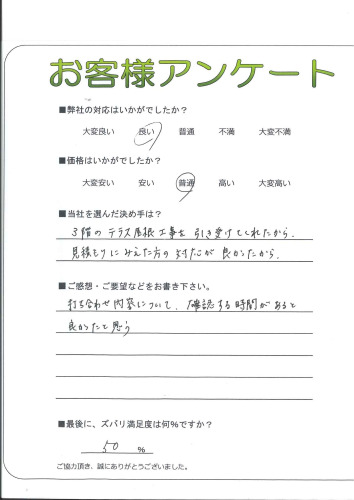 お客様アンケート
■弊社の対応はいかがでしたか？
大変良い 良い 普通 不満 大変不満
■価格はいかがでしたか？
大変安い 安い 普通 高い 大変高い
■当社を選んだ決め手は？
3階のテラス屋根工事を引き受けてくれたから.
見積もりにみえた方の対応が良かったから.
■ご感想・ご要望などをお書き下さい。
打ち合わせ内容について、確認する時間があると
良かったと思う
■最後に、ズバリ満足度は何％ですか？
50 ％
ご協力頂き、誠にありがとうございました。